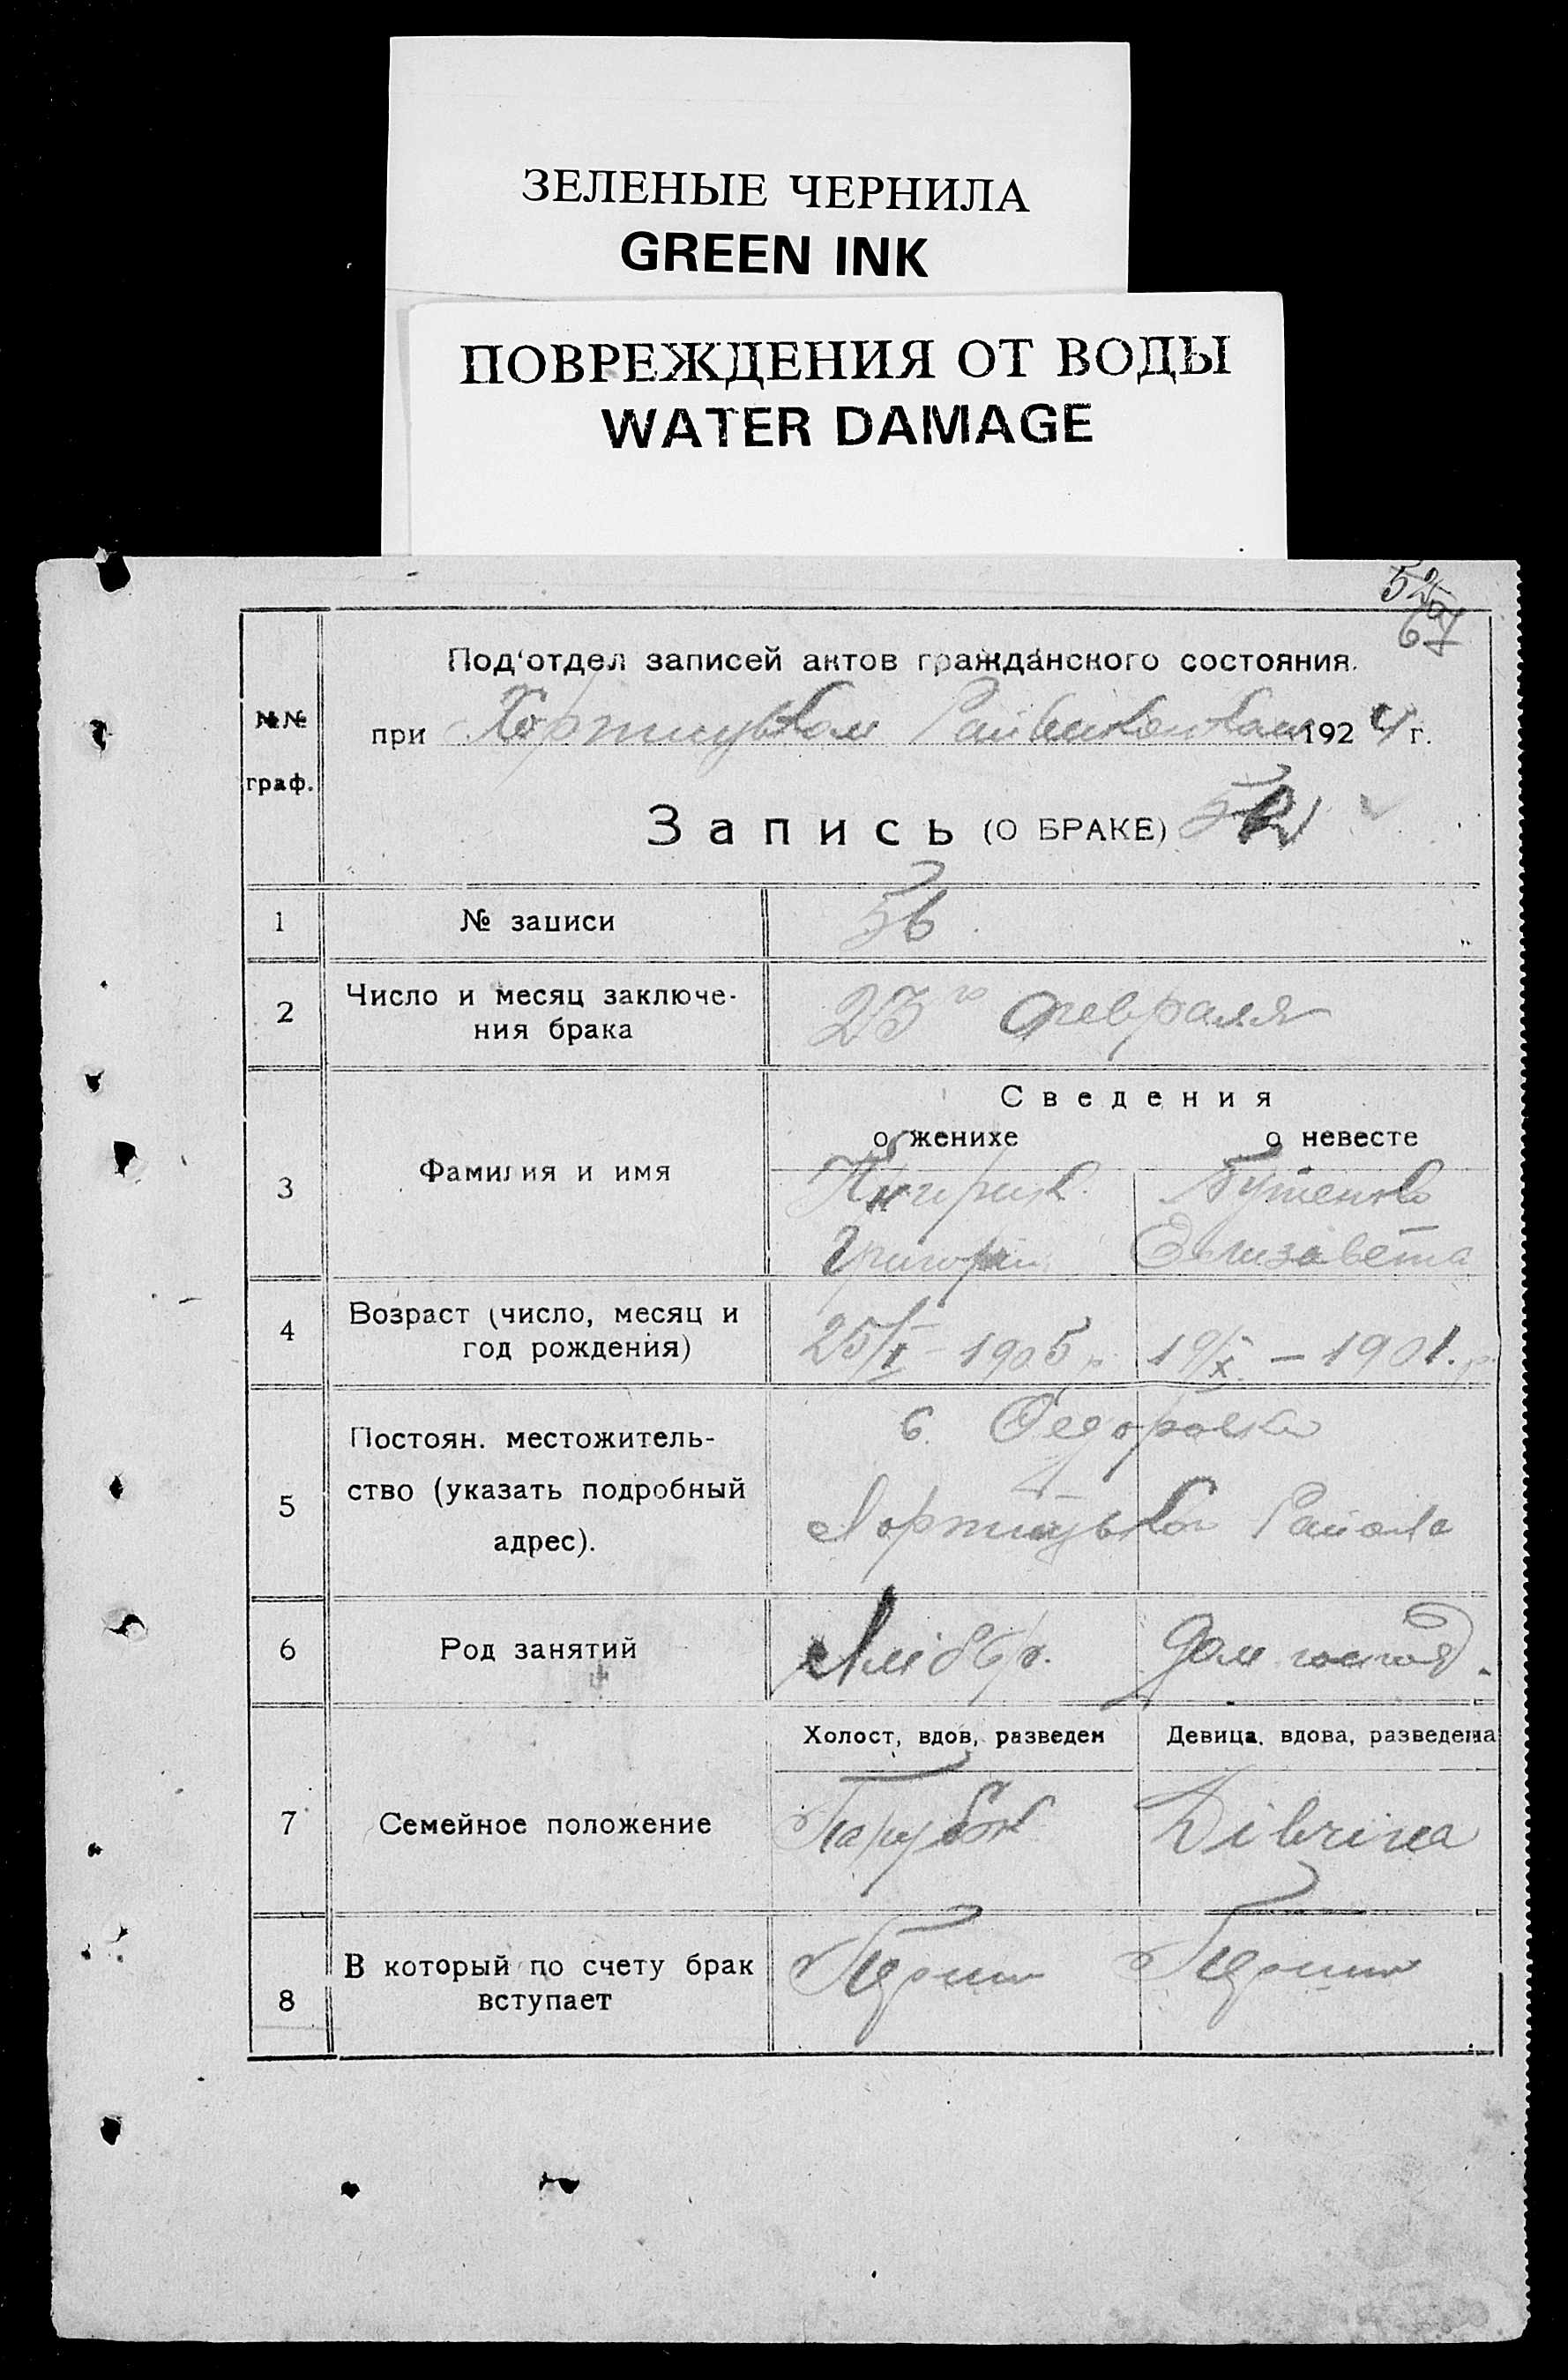 ЗЕЛЕНЫЕ ЧЕРНИЛА
GREEN INK
ПОВРЕЖДЕНИЯ ОТ ВОДЫ
WATER DAMAGE
52
67
№№
граф.
Под'отдел записей актов гражданского состояния.
при Хортицьком Райвиконкоми 1924 г.
Запись (О БРАКЕ)
1 № записи 56
2 Число и месяц заключе-
ния брака 23го Февраля
Сведения
о женихе о невесте
3 Фамилия и имя
Бутенко
Григорий Елизавета
4 Возраст (число, месяц и
год рождения)
25/I - 1905 р. 19/X - 1901. р.
5 Постоян. местожитель-
ство (указать подробный
адрес).
с. Федоровка
Хортицької Району
6 Род занятий
Хлібор. Дом господ.
Холост, вдов, разведен Девица, вдова, разведена
7 Семейное положение
Парубок Dіvrina
8 В который по счету брак
вступает
Перший Перший